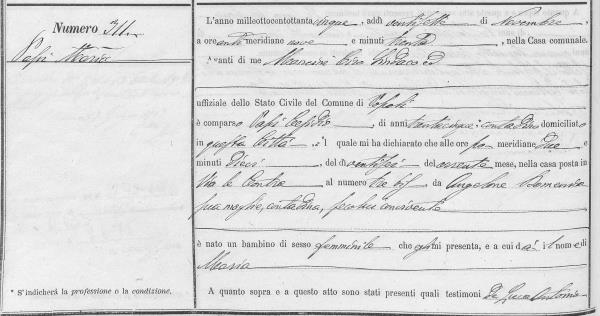 Numero 311.
Papi Maria
* S'indicherà la professione o la condizione.
L'anno milleottocentottantacinque, addì ventisette di Novembre
a ore anti meridiane nove e minuti trenta, nella Casa comunale.
Avanti di me Mancini Ciro Sindaco ed
uffiziale dello Stato Civile del Comune di Popoli
è comparso Papi, di anni trentacinque contadino domiciliato
in questa Città, il quale mi ha dichiarato che alle ore po meridiane due e
minuti dieci, del dì ventisei del corrente mese, nella casa posta in
Via le al numero, da Angelone Domenica
sua moglie, contadina, seco lui convivente
è nato un bambino di sesso femminile che egli mi presenta, e a cui dà il nome di
Maria
A quanto sopra e a questo atto sono stati presenti quali testimoni De Luca Antonio